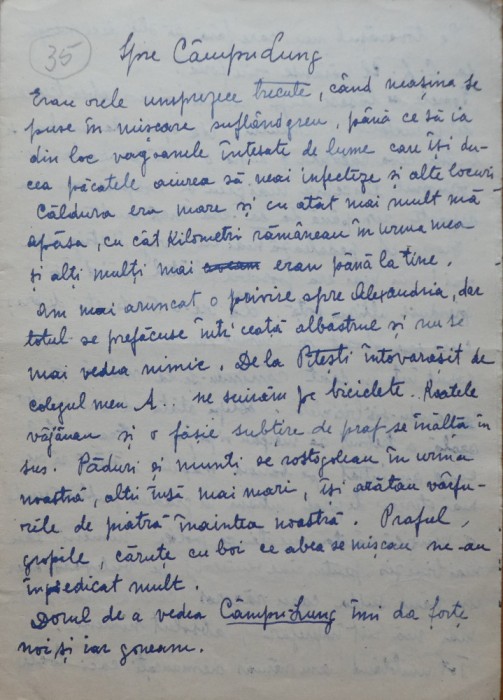 35
Spre Câmpu Lung
Erau orele unsprezece trecute, când mașina se
puse în mișcare suflând greu, până ce să ia
din loc vagoanele înțesate de lume care își du-
cea păcatele aiurea să mai infecteze și alte locuri
Căldura era mare și cu atât mai mult mă
apăsa, cu cât kilometri rămâneau în urma mea
și alți mulți mai aveam erau până la tine.
Am mai aruncat o privire spre Alexandria, dar
totul se prefăcuse într' ceață albăstrue și nu se
mai vedea nimic. De la Pitești întovarășit de
colegul meu A... ne suirăm pe biciclete. Roatele
vâjânau și o fâșie subțire de praf se înălță în
sus. Păduri și munți se rostogoleau în urma
noastră, alții însă mai mari, își arătau vârfu-
rile de piatră înaintea noastră. Praful,
gropile, căruțe cu boi ce abea se mișcau ne-au
împiedicat mult.
Dorul de a vedea Câmpu-Lung îmi da forțe
noi și iar goneam.